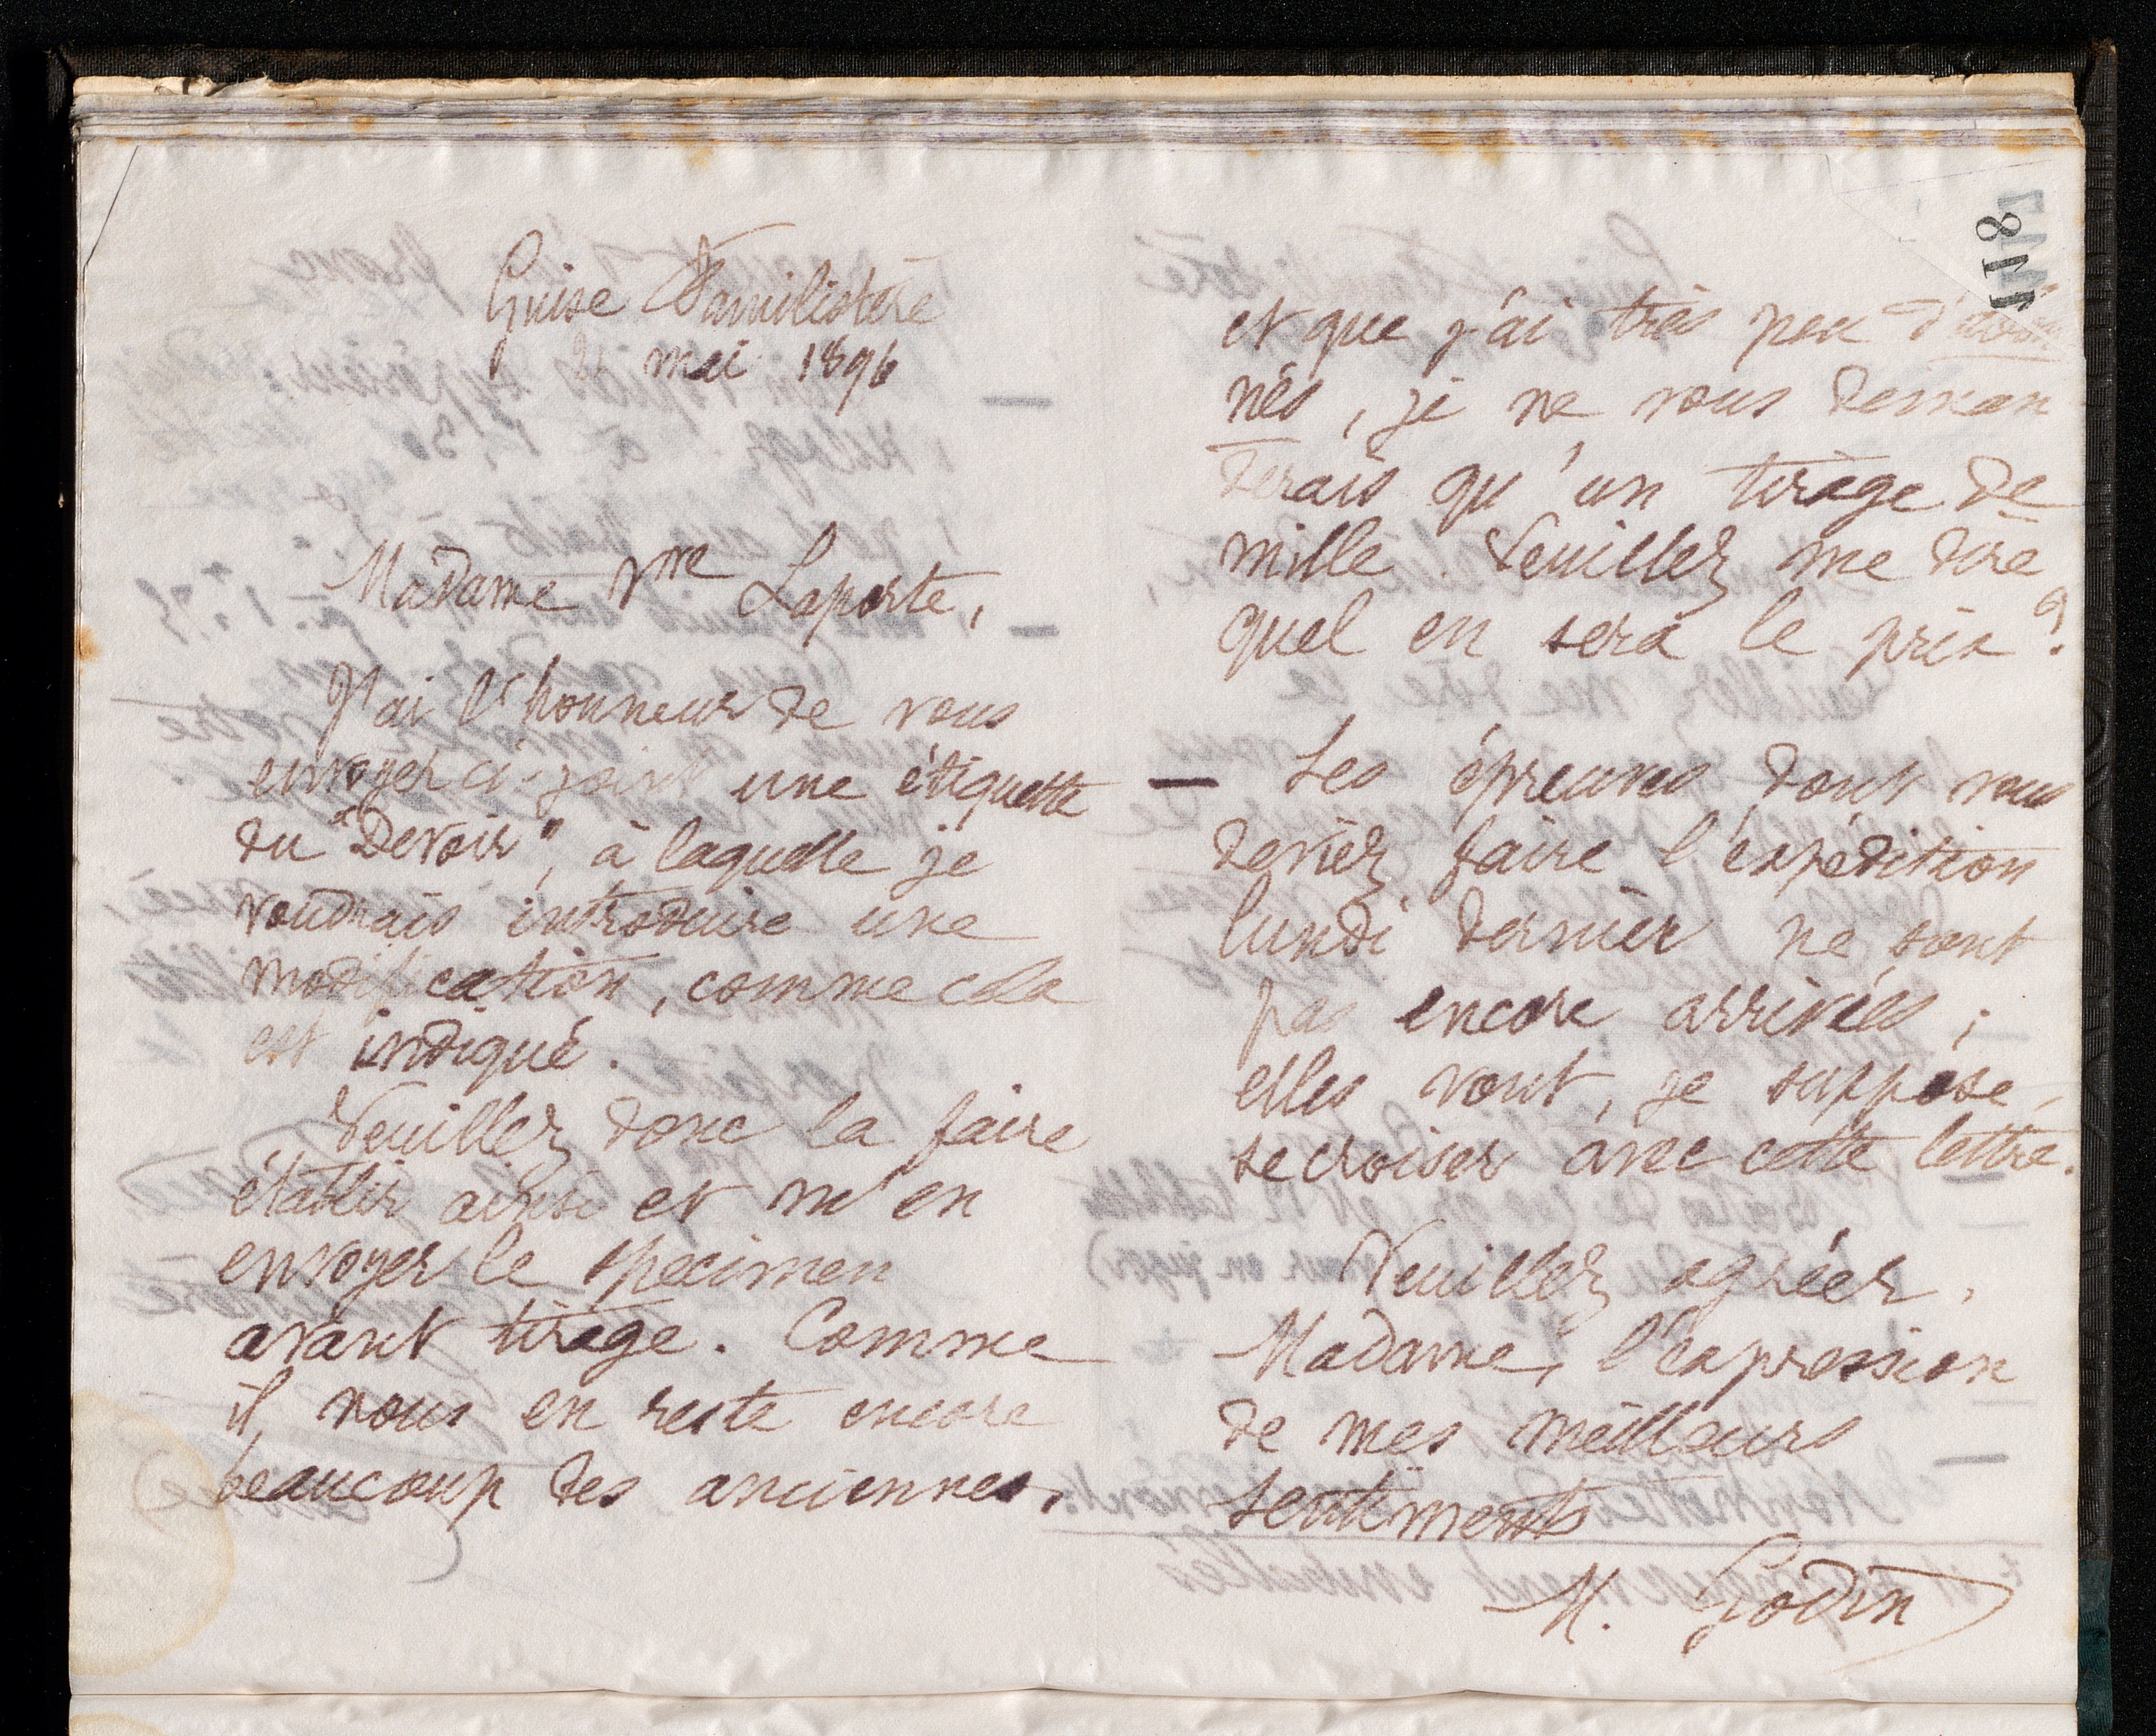 Guise Familistère
21 mai 1896
Madame Vve Laporte,
J'ai l'honneur de vous
envoyer ci-joint une étiquette
du "Devoir", à laquelle je
voudrais introduire une
modification, comme cela
est indiqué.
Veuillez donc la faire
établir ainsi et m'en
envoyer le specimen
avant tirage. Comme
il nous en reste encore
beaucoup des anciennes,
118
et que j'ai très peu d'abon
nés, je ne vous deman
derais qu'un tirage de
mille. Veuillez me dire
quel en sera le prix?
— Les épreuves dont vous
deviez faire l'expédition
lundi dernier ne sont
pas encore arrivées;
elles vont, je suppose,
se croiser avec cette lettre.
Veuillez agréer,
Madame, l'expression
de mes meilleurs
sentiments
M. Godin